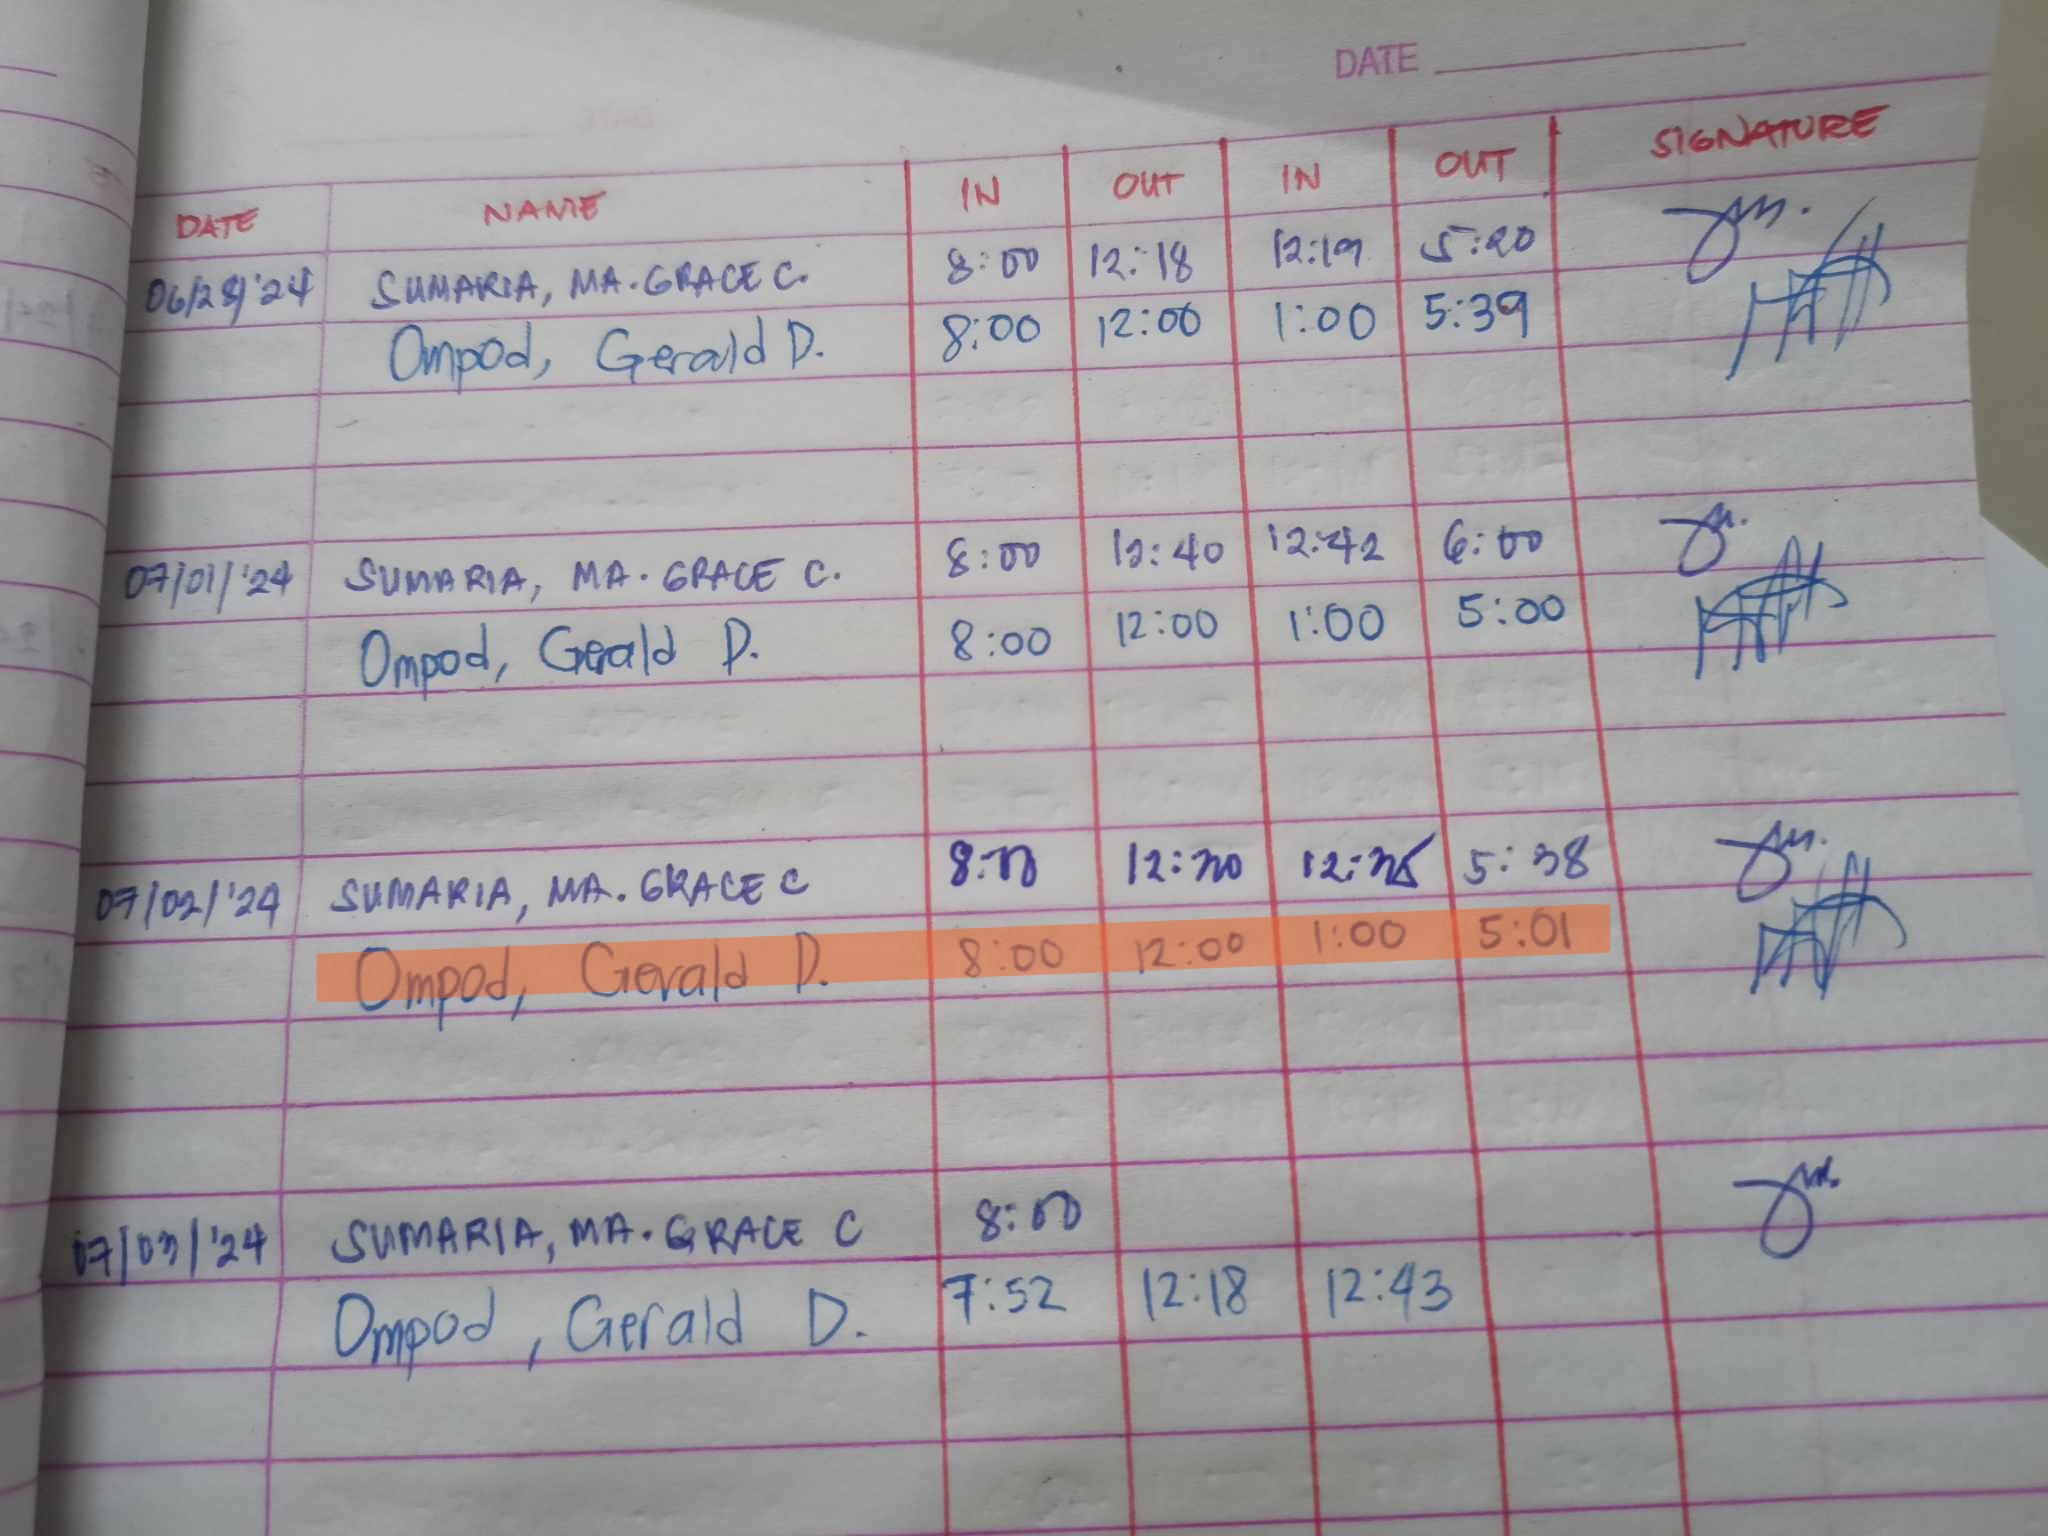 DATE
DATE NAME IN OUT IN OUT SIGNATURE
06/28/'24 SUMARIA, MA. GRACE C. 8:00 12:18 12:19 5:20
Ompod, Gerald D. 8:00 12:00 1:00 5:39
07/01/'24 SUMARIA, MA. GRACE C. 8:00 12:40 12:42 6:00
Ompod, Gerald D. 8:00 12:00 1:00 5:00
07/02/'24 SUMARIA, MA. GRACE C 8:00 12:30 5:38
Ompod, Gerald D. 8:00 12:00 1:00 5:01
07/03/'24 SUMARIA, MA. GRACE C 8:00
Ompod, Gerald D. 7:52 12:18 12:43